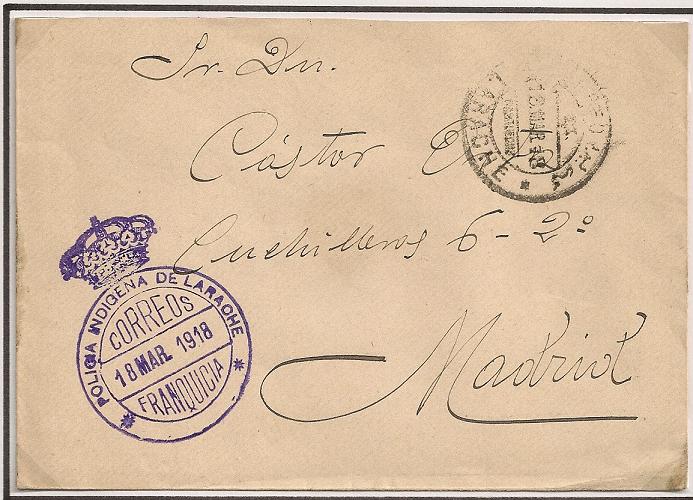 Sr. Dn.
Cástor
Cuchilleros 6-2º
Madrid
LARACHE
18.MAR.18
POLICIA INDIGENA DE LARACHE
CORREOS
18 MAR. 1918
FRANQUICIA